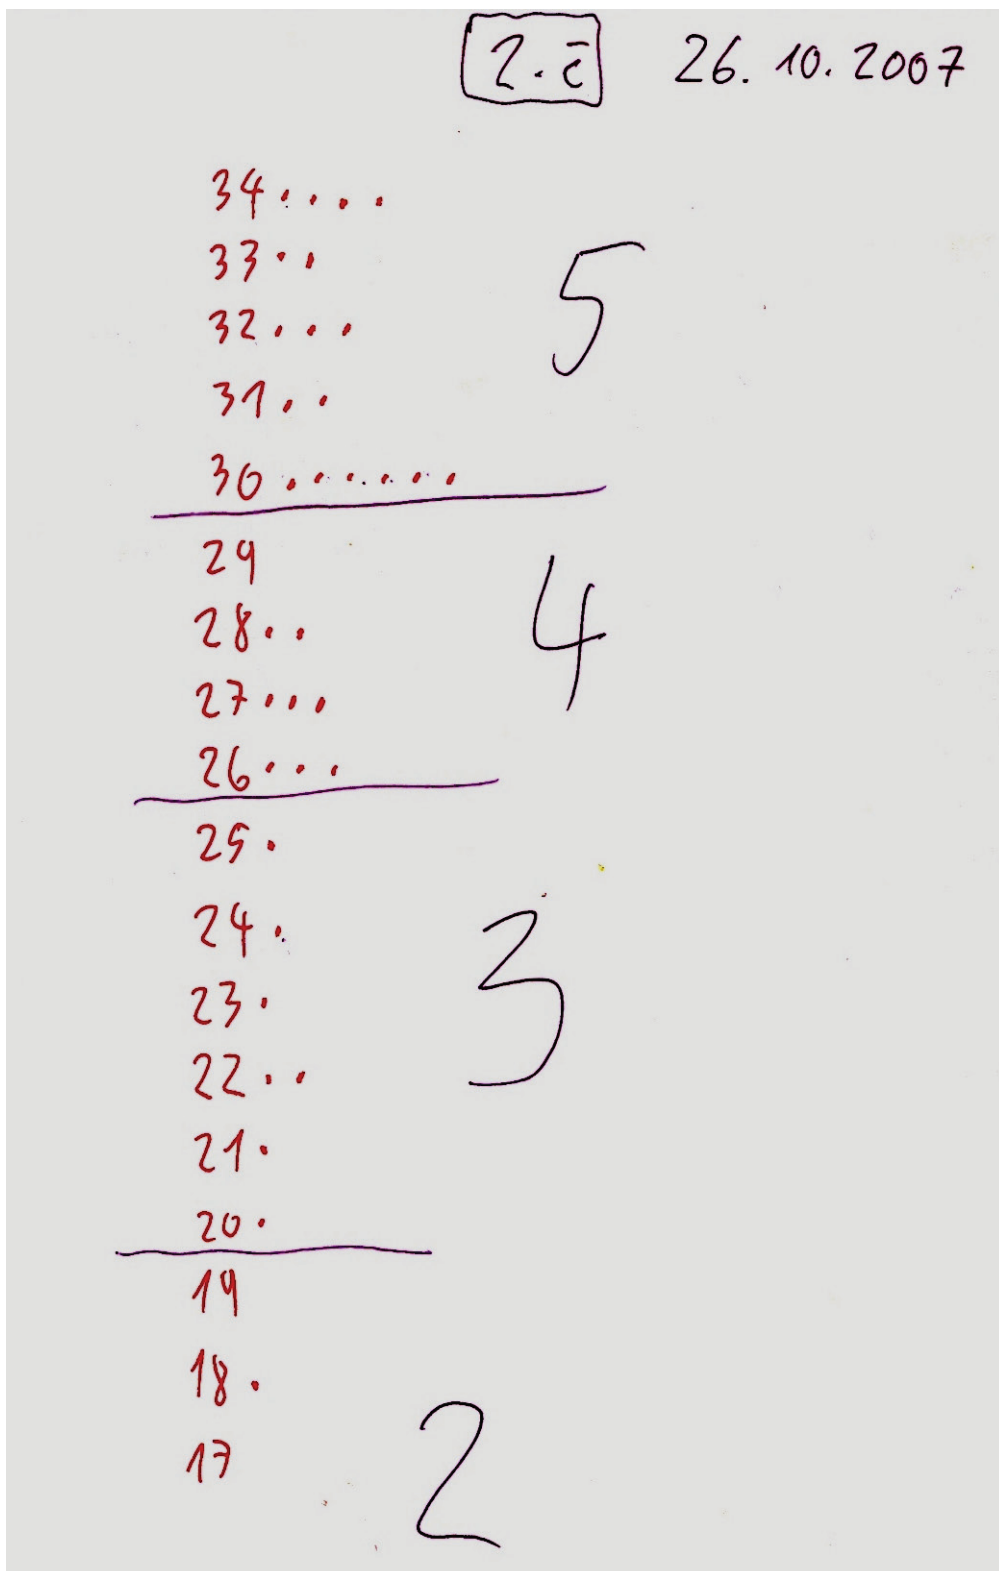 2.c̄ 26.10.2007
34....
33..
32...
31..
30......
5
29
28..
27...
26...
4
25.
24.
23.
22..
21.
20.
3
19
18.
17
2